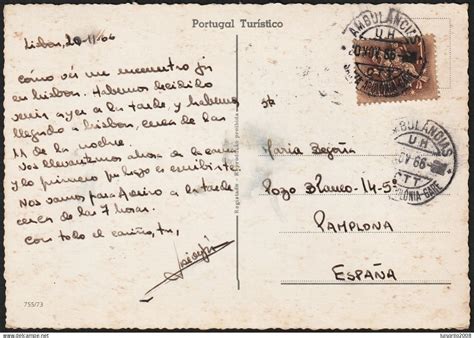 Portugal Turístico
Lisboa, 20-11-66
Cómo ves me encuentro ya
en Lisboa. Habemos decidido
venir ayer a la tarde y habemos
llegado a Lisboa, cerca de las
11 de la noche.
Nos levantamos ahora de la cama
y lo primero que hago es escribirte.
Nos vamos para Aveiro a la tarde
cerca de las 7 horas.
Con todo el cariño, tu,
755/73
AMBULANCIAS
U H
20 NOV 66
CTT
AMBULANCIAS
U H
NOV 66
CTT
POLÓNIA-GARE
Sta
María Begoña
Pozo Blanco-14-5º
PAMPLONA
ESPAÑA
www.delcampe.net
lunanto2008